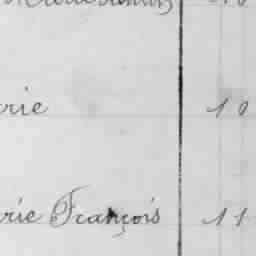 rie 10
rie François 11